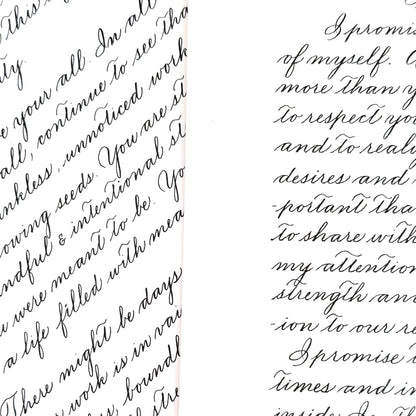 this
In all
e your all. In all
all, continue to see tha
nkless, unnoticed work
owing seeds. You are st
ndful & intentional st
u were meant to be. Yo
a life filled with mea
There might be days
work is in vai
boundl
I promis
of myself.
more than y
to respect you
and to reali
desires and
-portant tha
to share with
my attention
strength an
-ion to our re
I promise t
times and in
inside